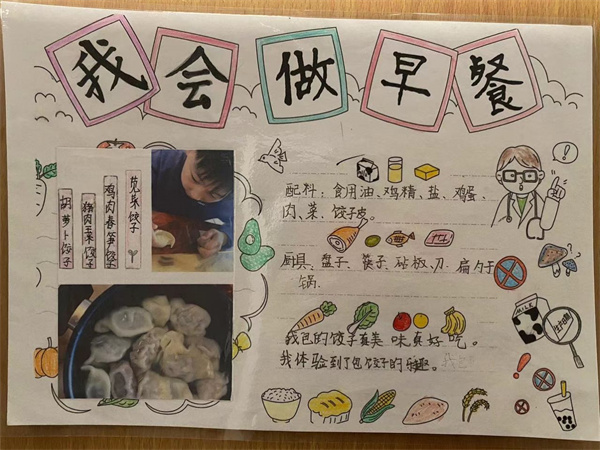 我会做早餐
苋菜饺子
鸡肉春笋饺子
猪肉玉米饺子
胡萝卜饺子
配料：食用油、鸡精、盐、鸡蛋、
肉、菜、饺子皮。
厨具、盘子、筷子、砧板、刀、扁勺子
锅.
我包的饺子真美味真好吃。
我体验到了包饺子的乐趣。